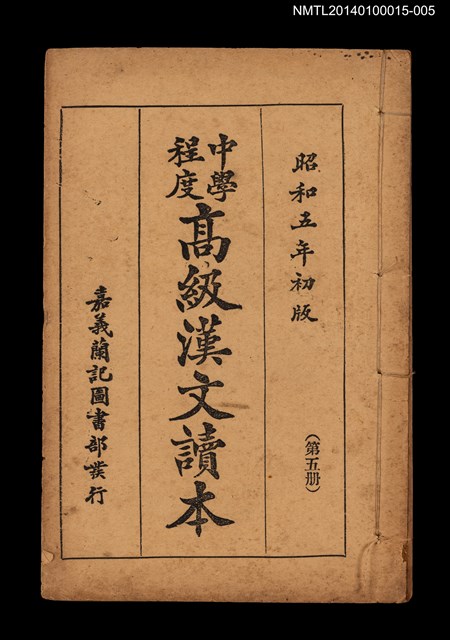 NMTL20140100015-005
昭和五年初版
（第五册）
中學程度
高級漢文讀本
嘉義蘭記圖書部發行